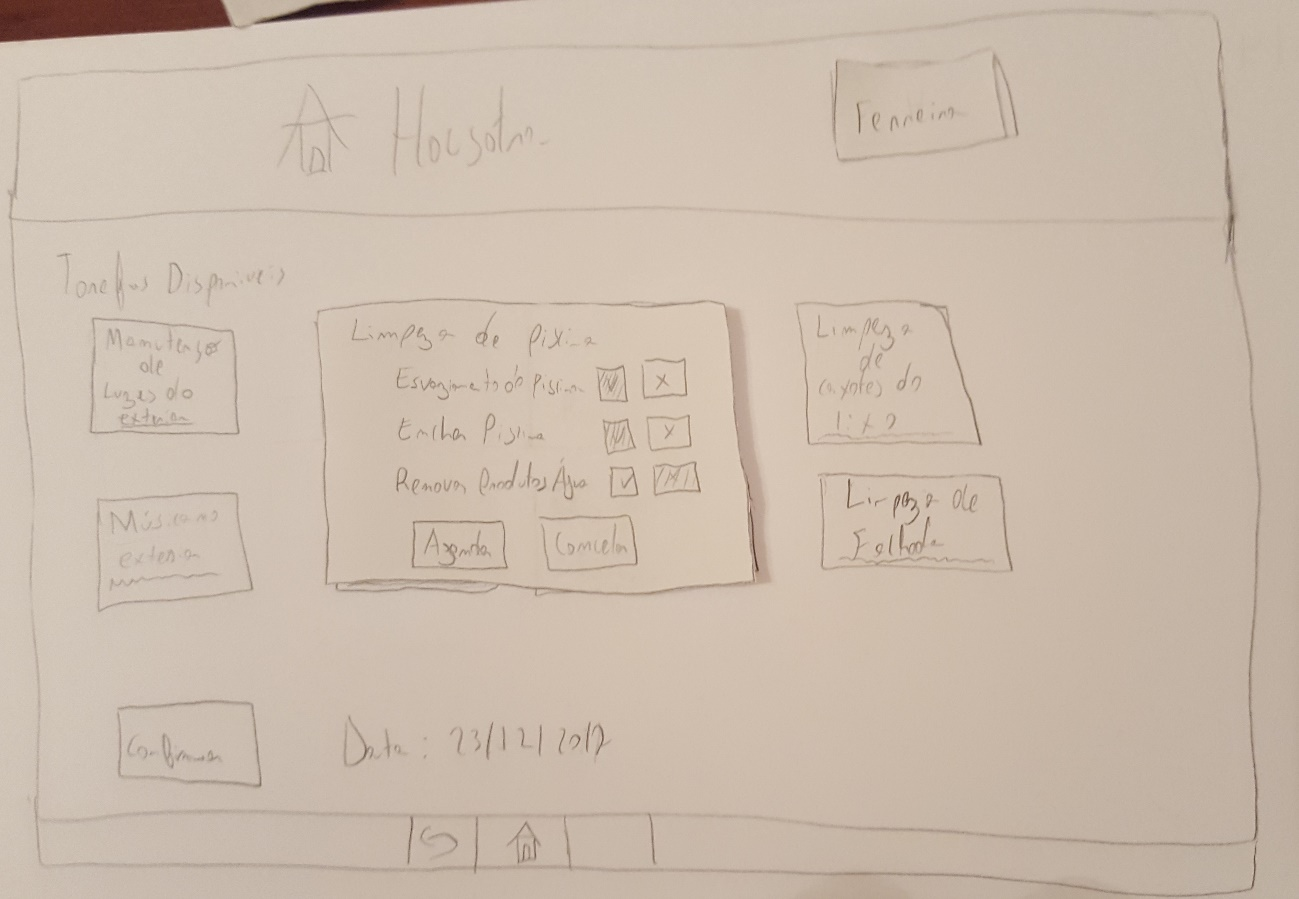 Ferreira
Tarefas Disponíveis
Manutenção
de
Luzes do
exterior
Música no
exterior
Limpeza de pixina
Esvaziamento da Piscina X
Encher Piscina X
Remover Produtos Água ✓
Agendar Cancelar
Limpeza
de
caixotes do
lixo
Limpeza de
Fachada
Confirmar
Data: 23/12/2017